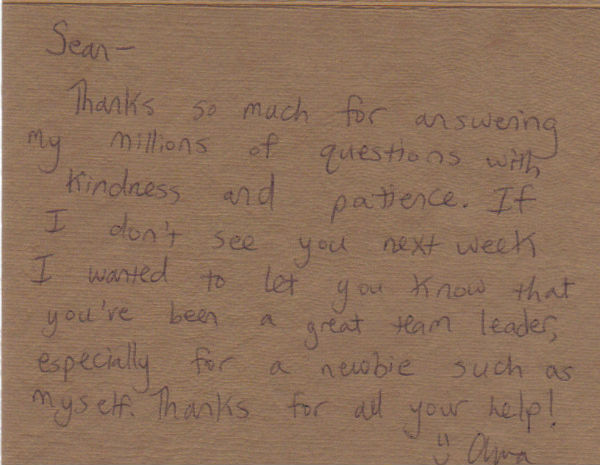 Sean-
Thanks so much for answering
my millions of questions with
kindness and patience. If
I don't see you next week
I wanted to let you know that
you've been a great team leader,
especially for a newbie such as
myself. Thanks for all your help!